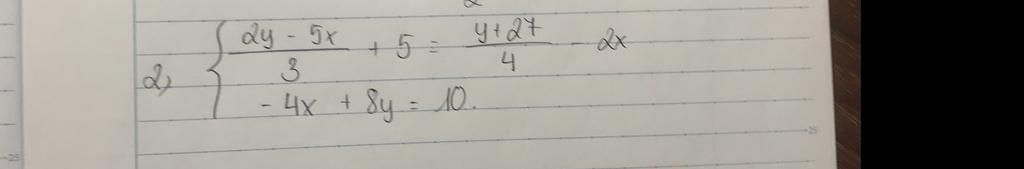 2) { (2y - 5x)/3 + 5 = (y+27)/4 - 2x
-4x + 8y = 10.
25
25